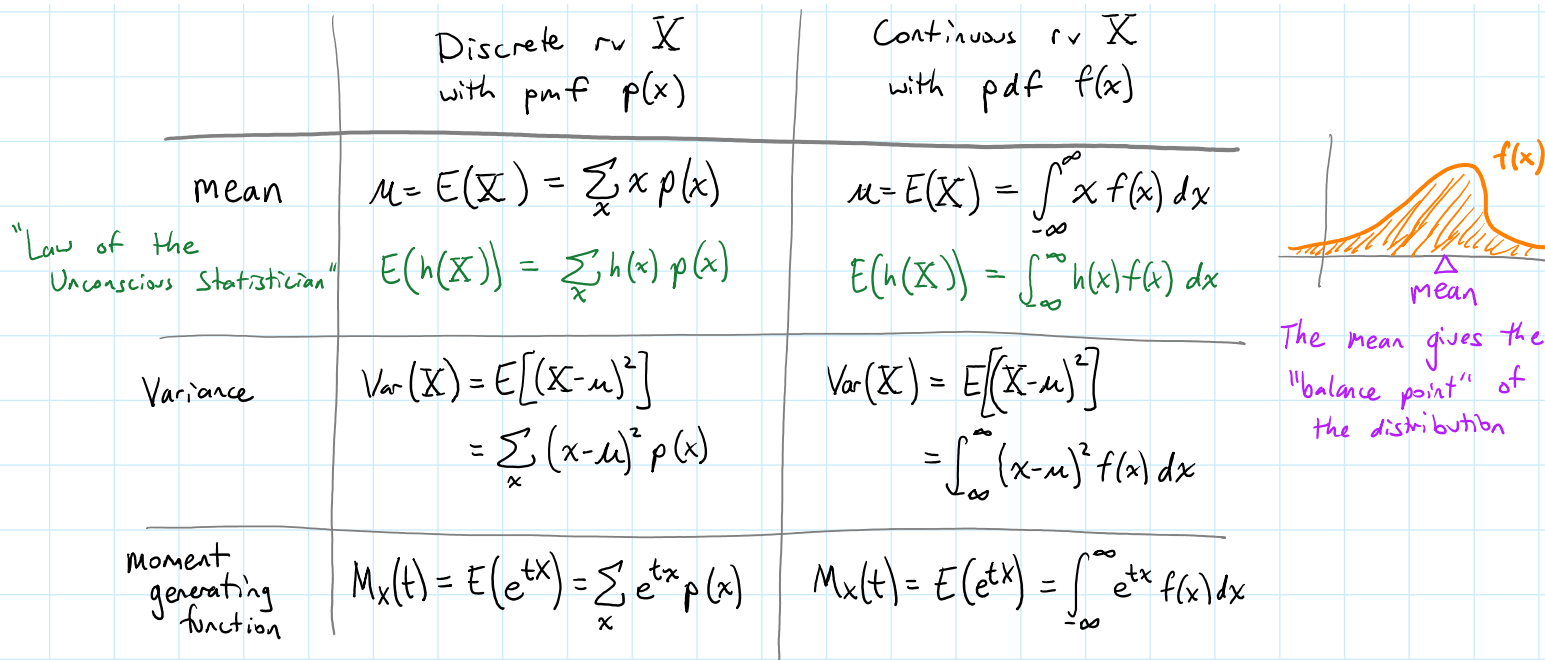 Discrete rv X
with pmf p(x)
Continuous rv X
with pdf f(x)
mean
μ = E(X) = ∑_x x p(x)
μ = E(X) = ∫_{-∞}^{∞} x f(x) dx
"Law of the
Unconscious Statistician"
E(h(X)) = ∑_x h(x) p(x)
E(h(X)) = ∫_{-∞}^{∞} h(x) f(x) dx
Variance
Var(X) = E[(X-μ)²]
= ∑_x (x-μ)² p(x)
Var(X) = E[(X-μ)²]
= ∫_{-∞}^{∞} (x-μ)² f(x) dx
moment
generating
function
M_X(t) = E(e^{tX}) = ∑_x e^{tx} p(x)
M_X(t) = E(e^{tX}) = ∫_{-∞}^{∞} e^{tx} f(x) dx
f(x)
mean
The mean gives the
"balance point" of
the distribution